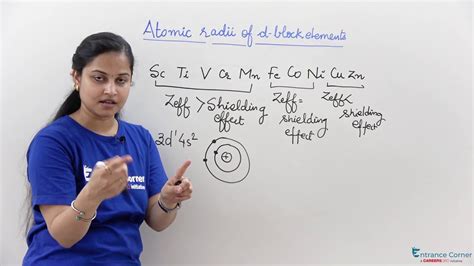 Atomic radii of d-block elements
Sc Ti V Cr Mn Fe Co Ni Cu Zn
Zeff > Shielding effect
Zeff = shielding effect
Zeff < shielding effect
3d¹4s²
+
Entrance Corner
Entrance Corner
A CAREERS360 Initiative